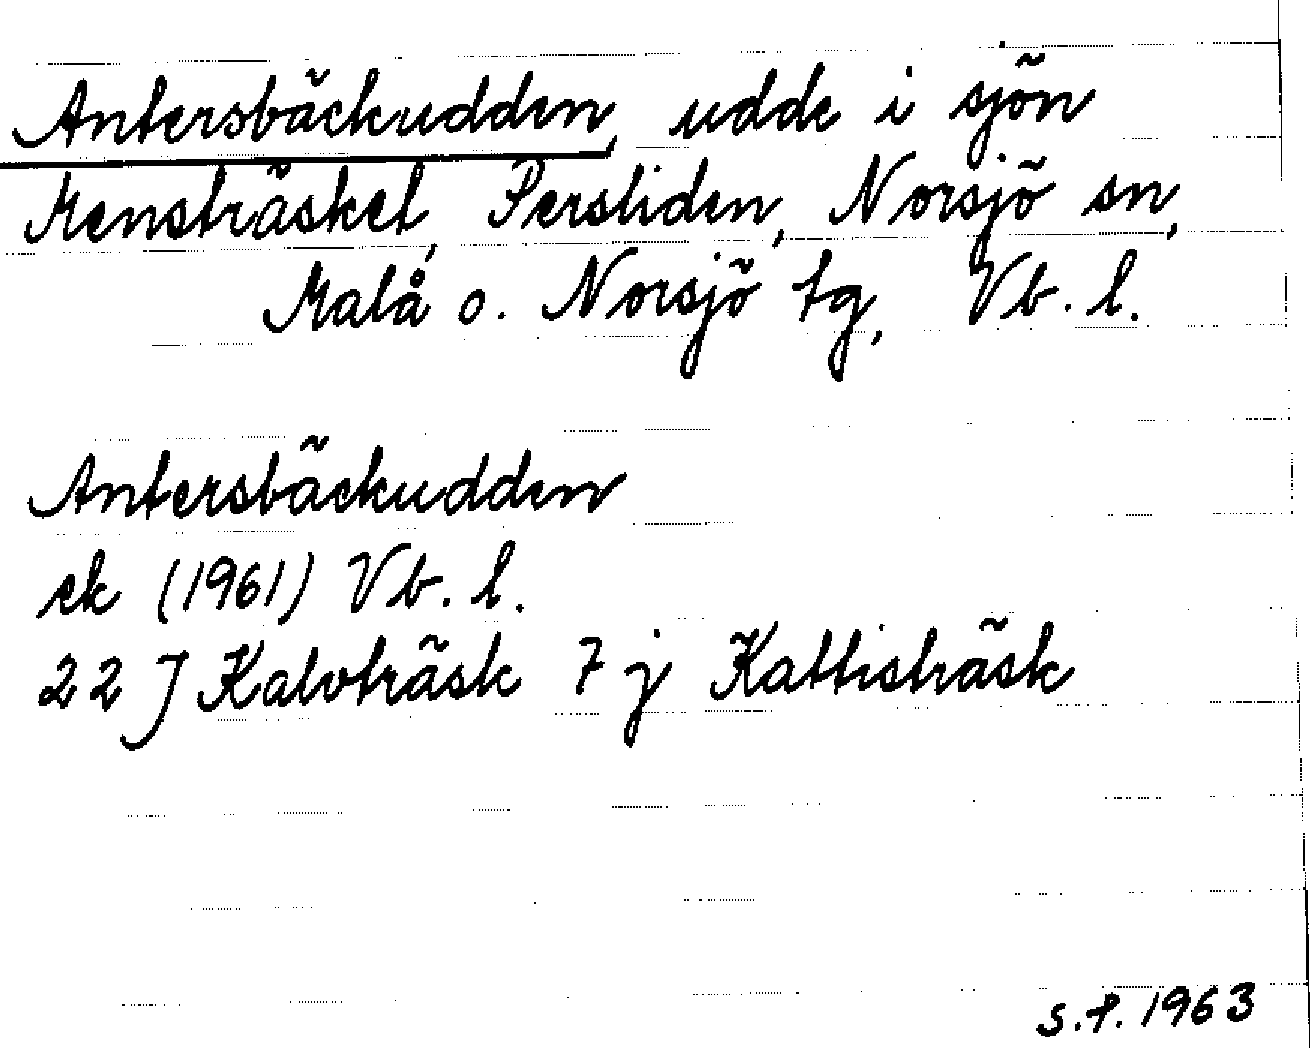 Antersbäckudden, udde i sjön
Mensträsket, Persliden, Norsjö sn,
Malå o. Norsjö tg, Vb. l.
Antersbäckudden
ek (1961) Vb. l.
22 J Kalvträsk 7 j Kattisträsk
s.f. 1963